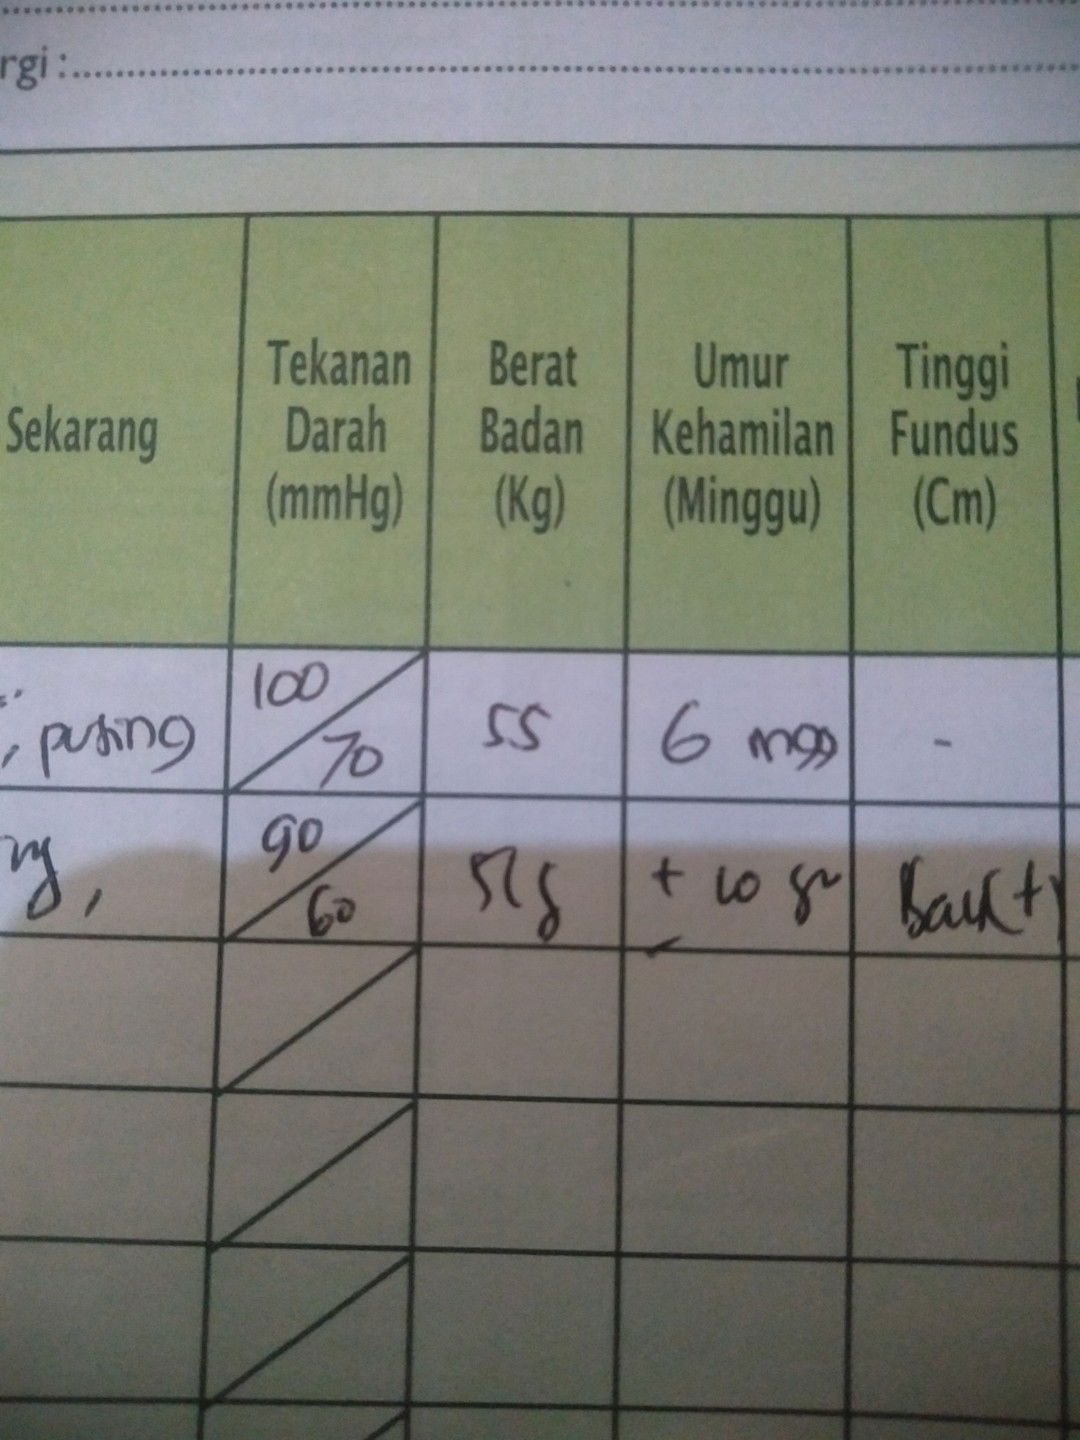 rgi :
Sekarang
Tekanan Darah (mmHg)
Berat Badan (Kg)
Umur Kehamilan (Minggu)
Tinggi Fundus (Cm)
, pusing 100/70 55 6 mgg -
90/60 +